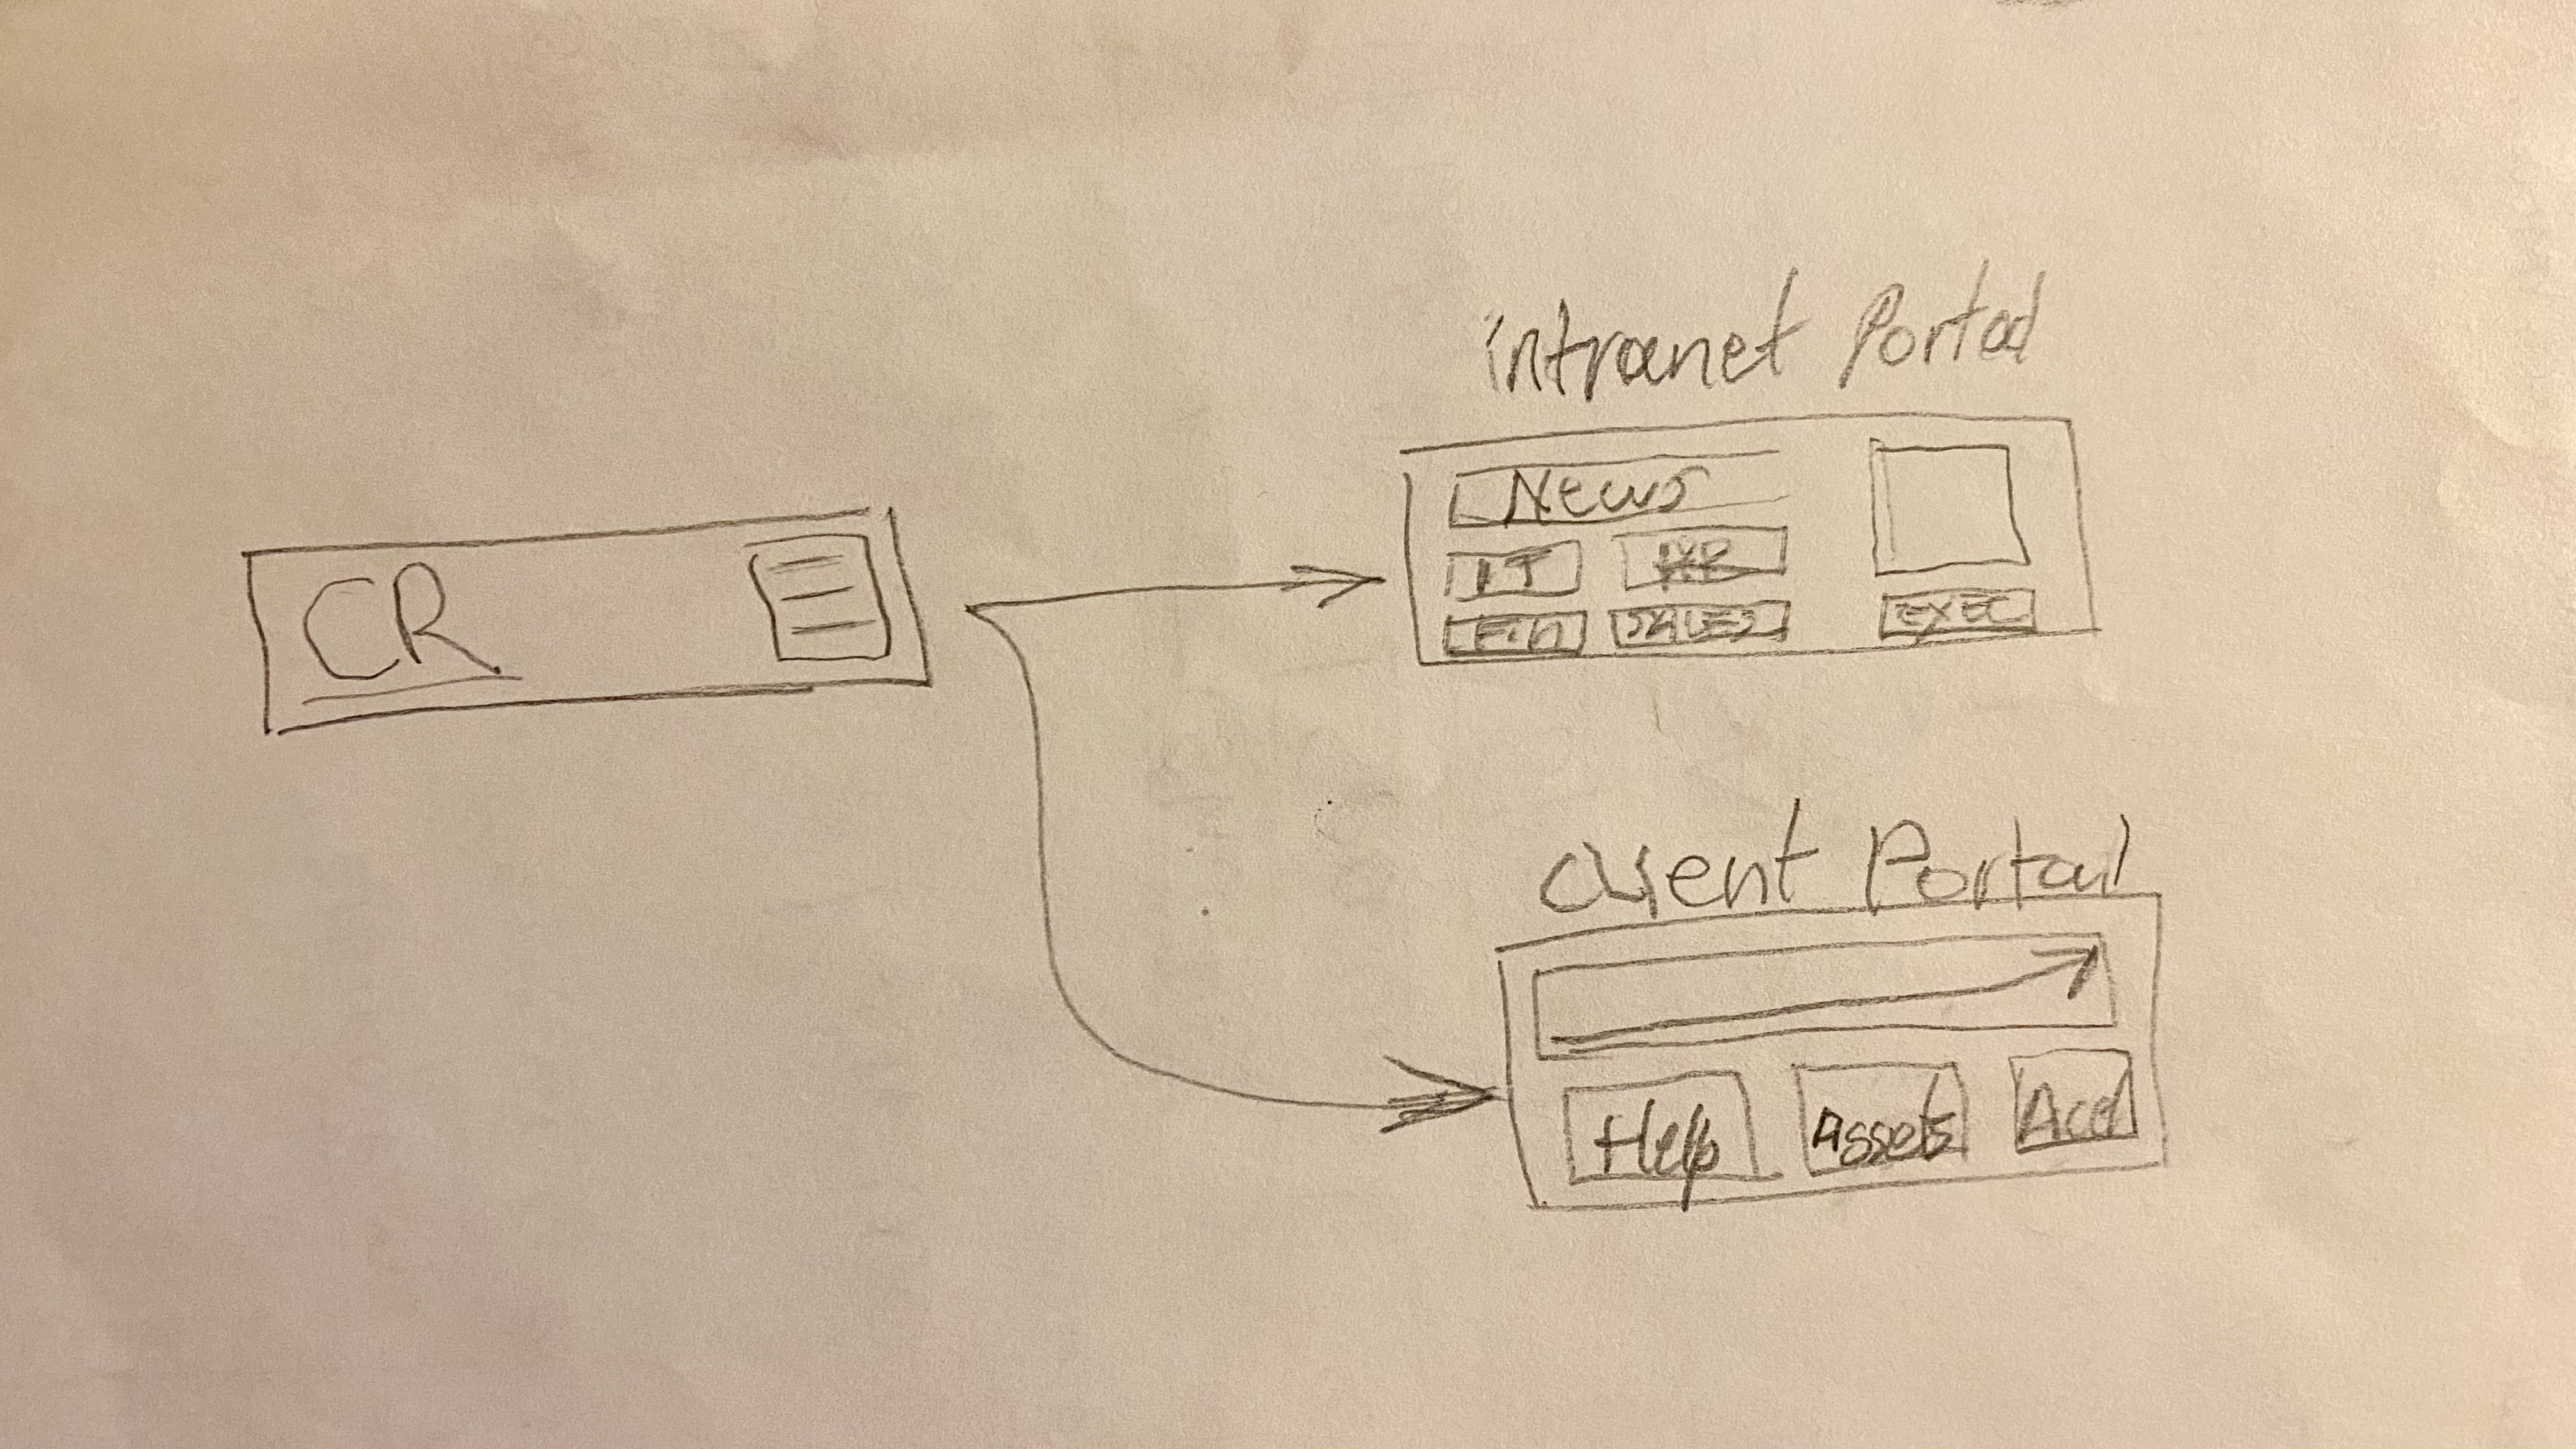 intranet Portal
News
IT HR
Fin SALES EXEC
CR
Client Portal
Help Assets